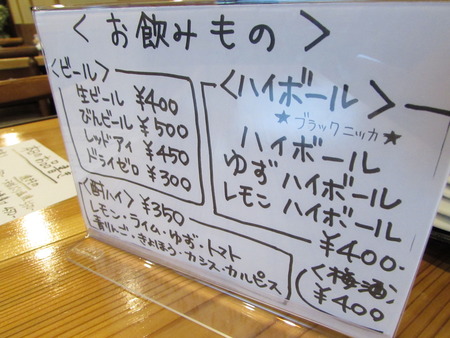 <お飲みもの>
<ビール>
生ビール ¥400
びんビール ¥500
レッドアイ ¥450
ドライゼロ ¥300
<ハイボール>
★ブラックニッカ★
ハイボール
ゆずハイボール
レモンハイボール
¥400-
<酎ハイ> ¥350
レモン・ライム・ゆず・トマト
青りんご・きょほう・カシス・カルピス
<梅酒>
¥400